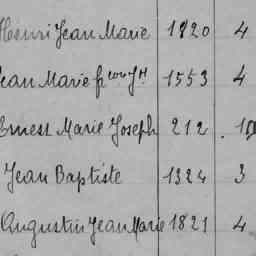 Henri Jean Marie 1820 4
Jean Marie fr 1553 4
Ernest Marie Joseph 212
Jean Baptiste 1324 3
Augustin Jean Marie 1821 4